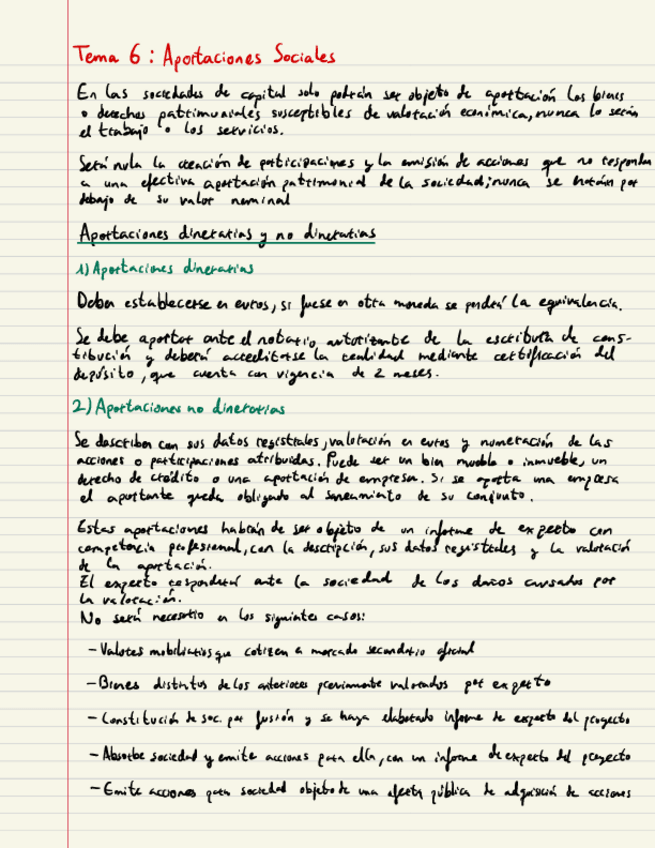 Tema 6: Aportaciones Sociales
En las sociedades de capital solo podrán ser objeto de aportación los bienes
o derechos patrimoniales susceptibles de valoración económica, nunca lo serán
el trabajo o los servicios.
Será nula la creación de participaciones y la emisión de acciones que no respondan
a una efectiva aportación patrimonial de la sociedad; nunca se harán por
debajo de su valor nominal
Aportaciones dinerarias y no dinerarias
1) Aportaciones dinerarias
Deben establecerse en euros, si fuese en otra moneda se pondrá la equivalencia.
Se debe aportar ante el notario autorizante de la escritura de cons-
titución y deberá acreditarse la realidad mediante certificación del
depósito, que cuenta con vigencia de 2 meses.
2) Aportaciones no dinerarias
Se describen con sus datos registrales, valoración en euros y numeración de las
acciones o participaciones atribuidas. Puede ser un bien mueble o inmueble, un
derecho de crédito o una aportación de empresa. Si se aporta una empresa
el aportante queda obligado al saneamiento de su conjunto.
Estas aportaciones habrán de ser objeto de un informe de experto con
competencia profesional, con la descripción, sus datos registrales y la valoración
de la aportación.
El experto responderá ante la sociedad de los daños causados por
la valoración.
No será necesario en los siguientes casos:
- Valores mobiliarios que coticen a mercado secundario oficial
- Bienes distintos de los anteriores previamente valorados por experto
- Constitución de soc. por fusión y se haya elaborado informe de experto del proyecto
- Absorbe sociedad y emite acciones para ella, con un informe de experto del proyecto
- Emite acciones para sociedad objeto de una oferta pública de adquisición de acciones